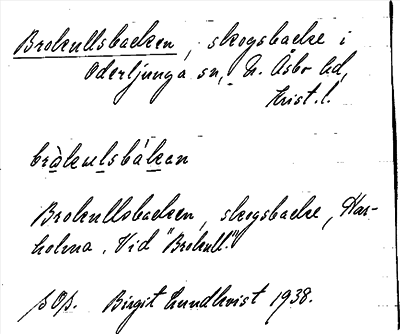 Brokullsbacken, skogsbacke i
Oderljunga sn, N. Åsbo hd,
Krist. l.
bràkulsbákan
Brokullsbacken, skogsbacke, Kar-
holma. Vid "Brokull".
s Op. Birgit Lundkvist 1938.